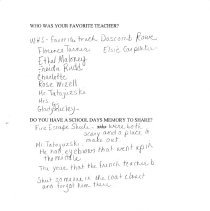 WHO WAS YOUR FAVORITE TEACHER?
WHS - Favorite track Dascomb Rowe
Florence Tanner Elsie Carpenter
Ethel Maloney
Charlotte
Rose Mizell
Mr Tatoyizska
Mrs
Gladys
DO YOU HAVE A SCHOOL DAYS MEMORY TO SHARE?
Fire Escape Shute - were both
scary and a place to
make out
Mr Tatoyizska
He had eyebrows that went up in
the middle
The year that the French teacher
Shut someone in the coat closet
and forgot him there